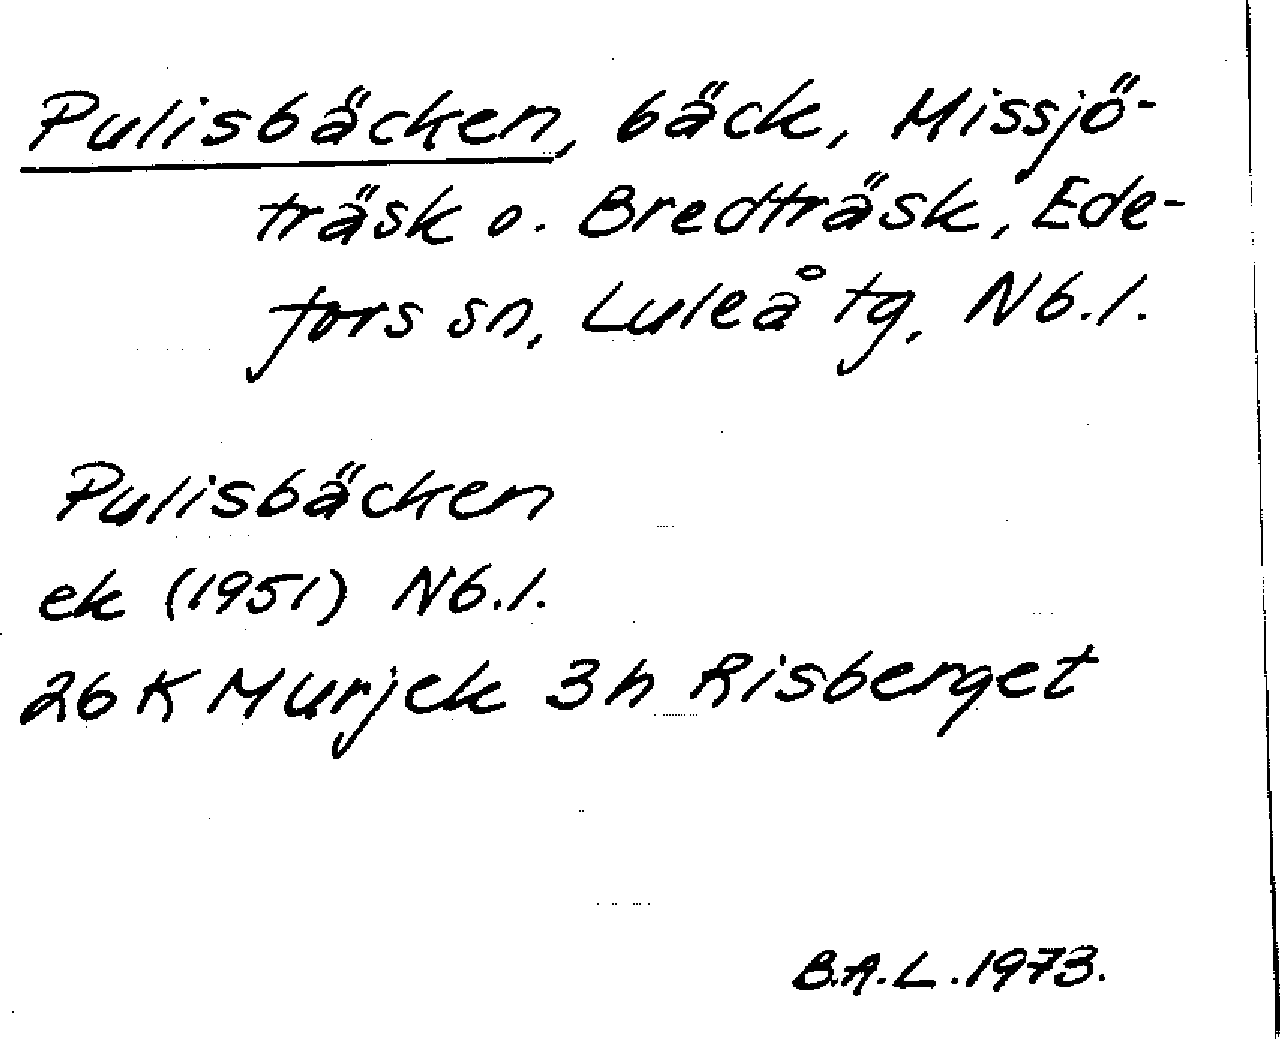 Pulisbäcken, bäck, Missjö-
träsk o. Bredträsk, Ede-
fors sn, Luleå tg, Nb.l.
Pulisbäcken
ek (1951) Nb.l.
26 K Murjek 3h Risberget
B.A.L. 1973.